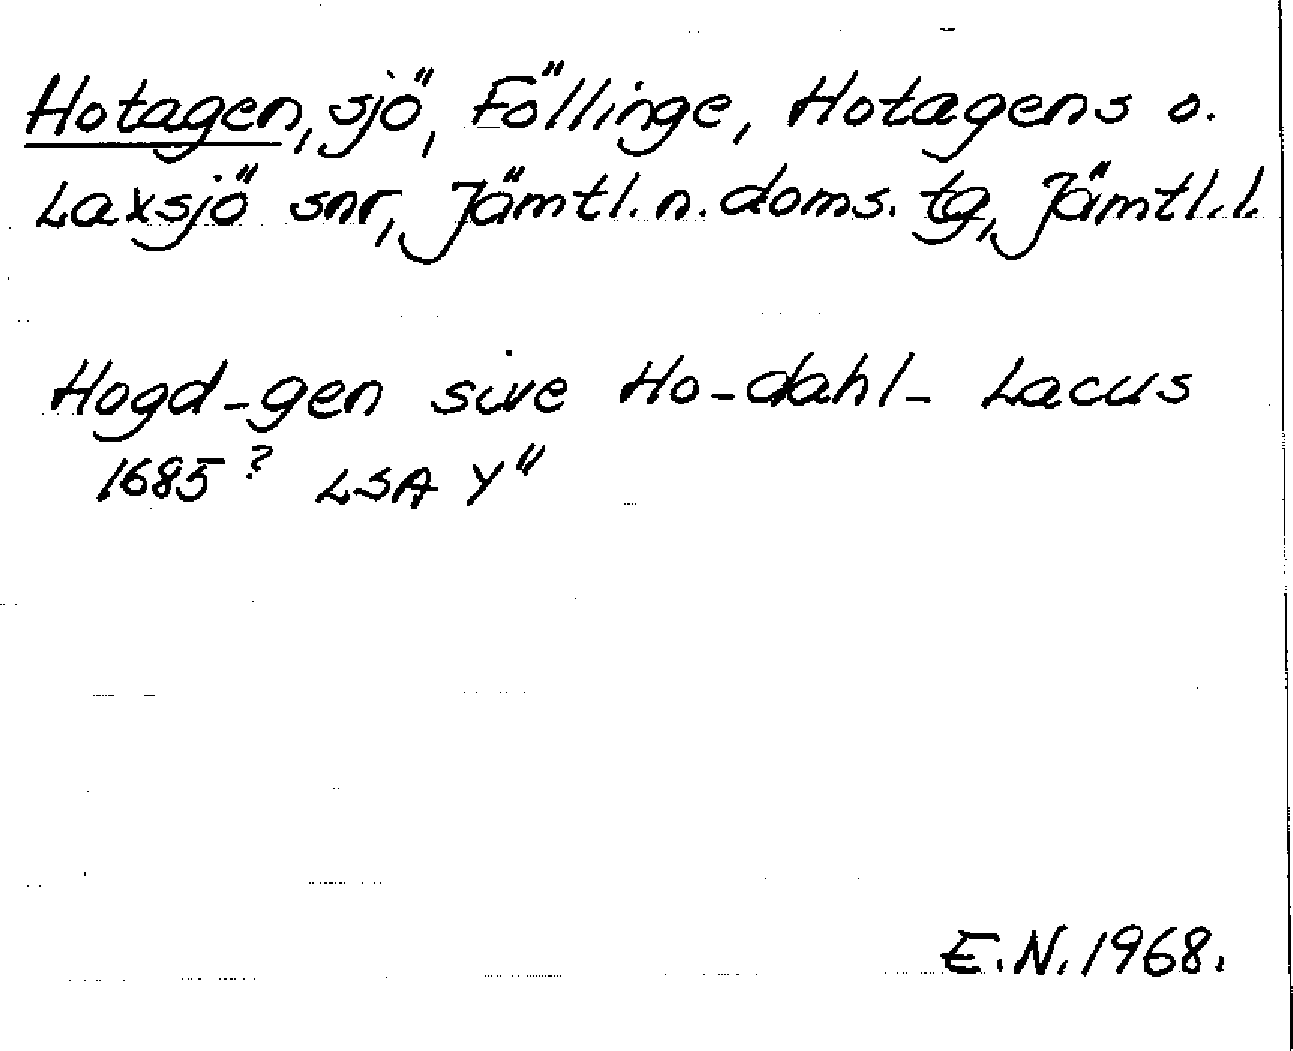 Hotagen, sjö, Föllinge, Hotagens o.
Laxsjö snr, Jämtl. n. doms. tg, Jämtl. l.
Hogd-gen sive Ho-dahl- Lacus
1685? LSA Y"
E.N. 1968.